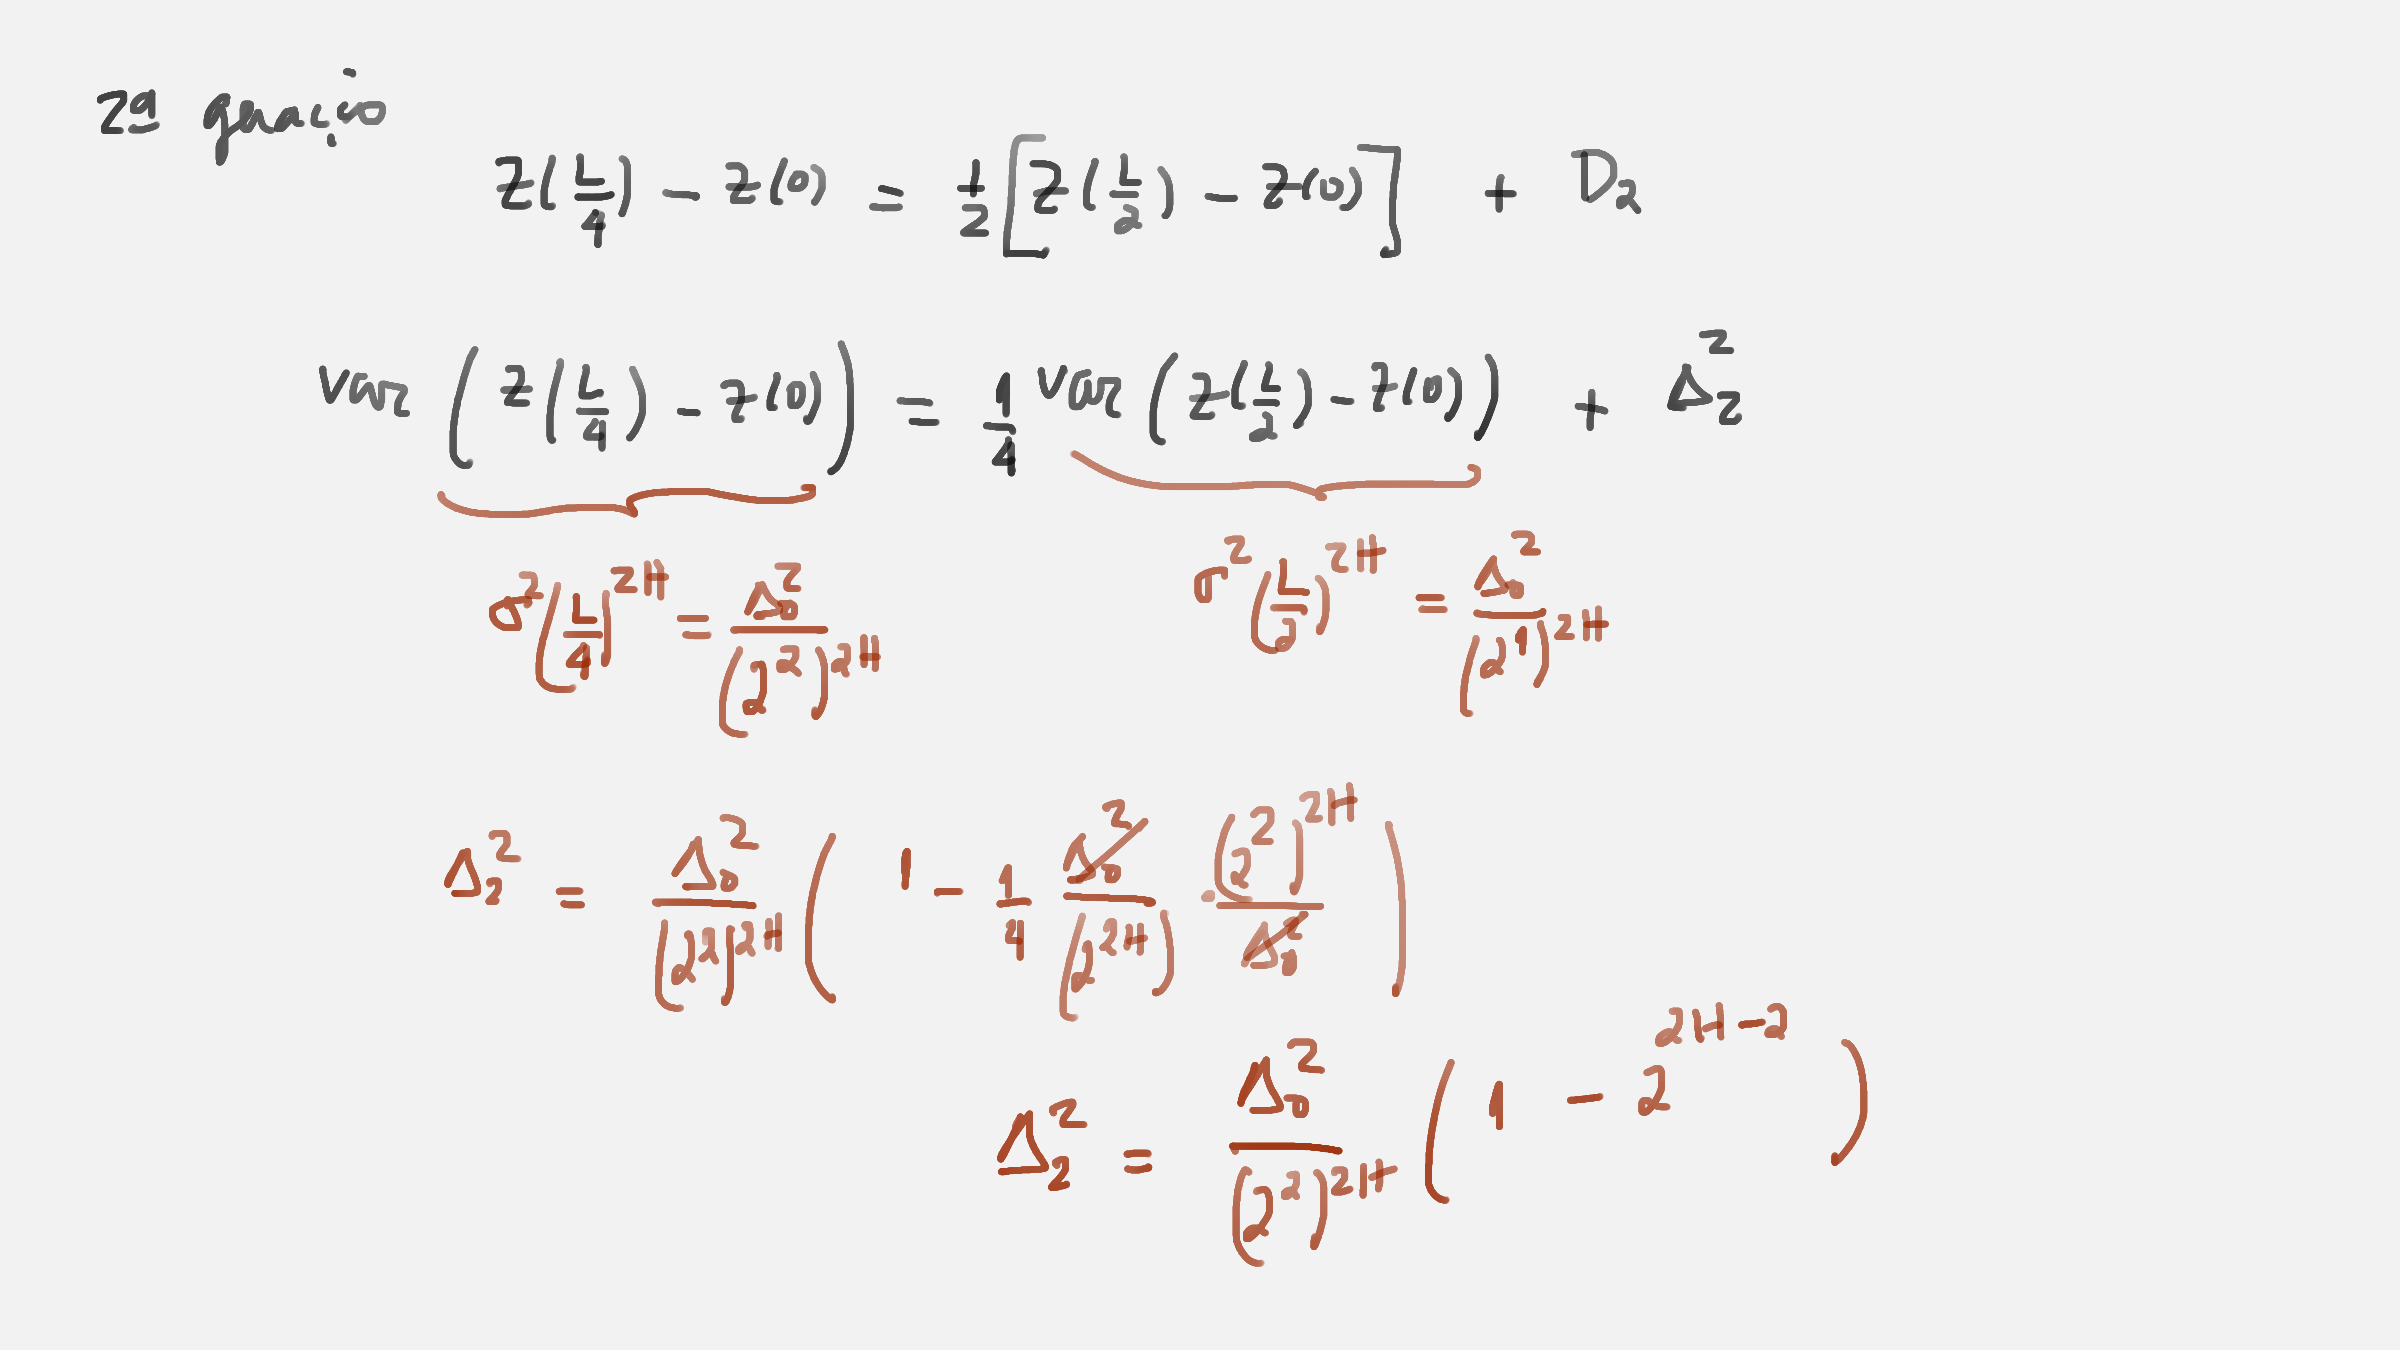 2ª geração
Z(L/4) - Z(0) = 1/2 [Z(L/2) - Z(0)] + D₂
var (Z(L/4) - Z(0)) = 1/4 var (Z(L/2) - Z(0)) + Δ₂²
σ²(L/4)^2H = Δ₀²/(2²)^2H σ²(L/2)^2H = Δ₀²/(2¹)^2H
Δ₂² = Δ₀²/(2²)^2H (1 - 1/4 Δ₀²/(2^2H) · (2²)^2H/Δ₀²)
Δ₂² = Δ₀²/(2²)^2H (1 - 2^2H-2)